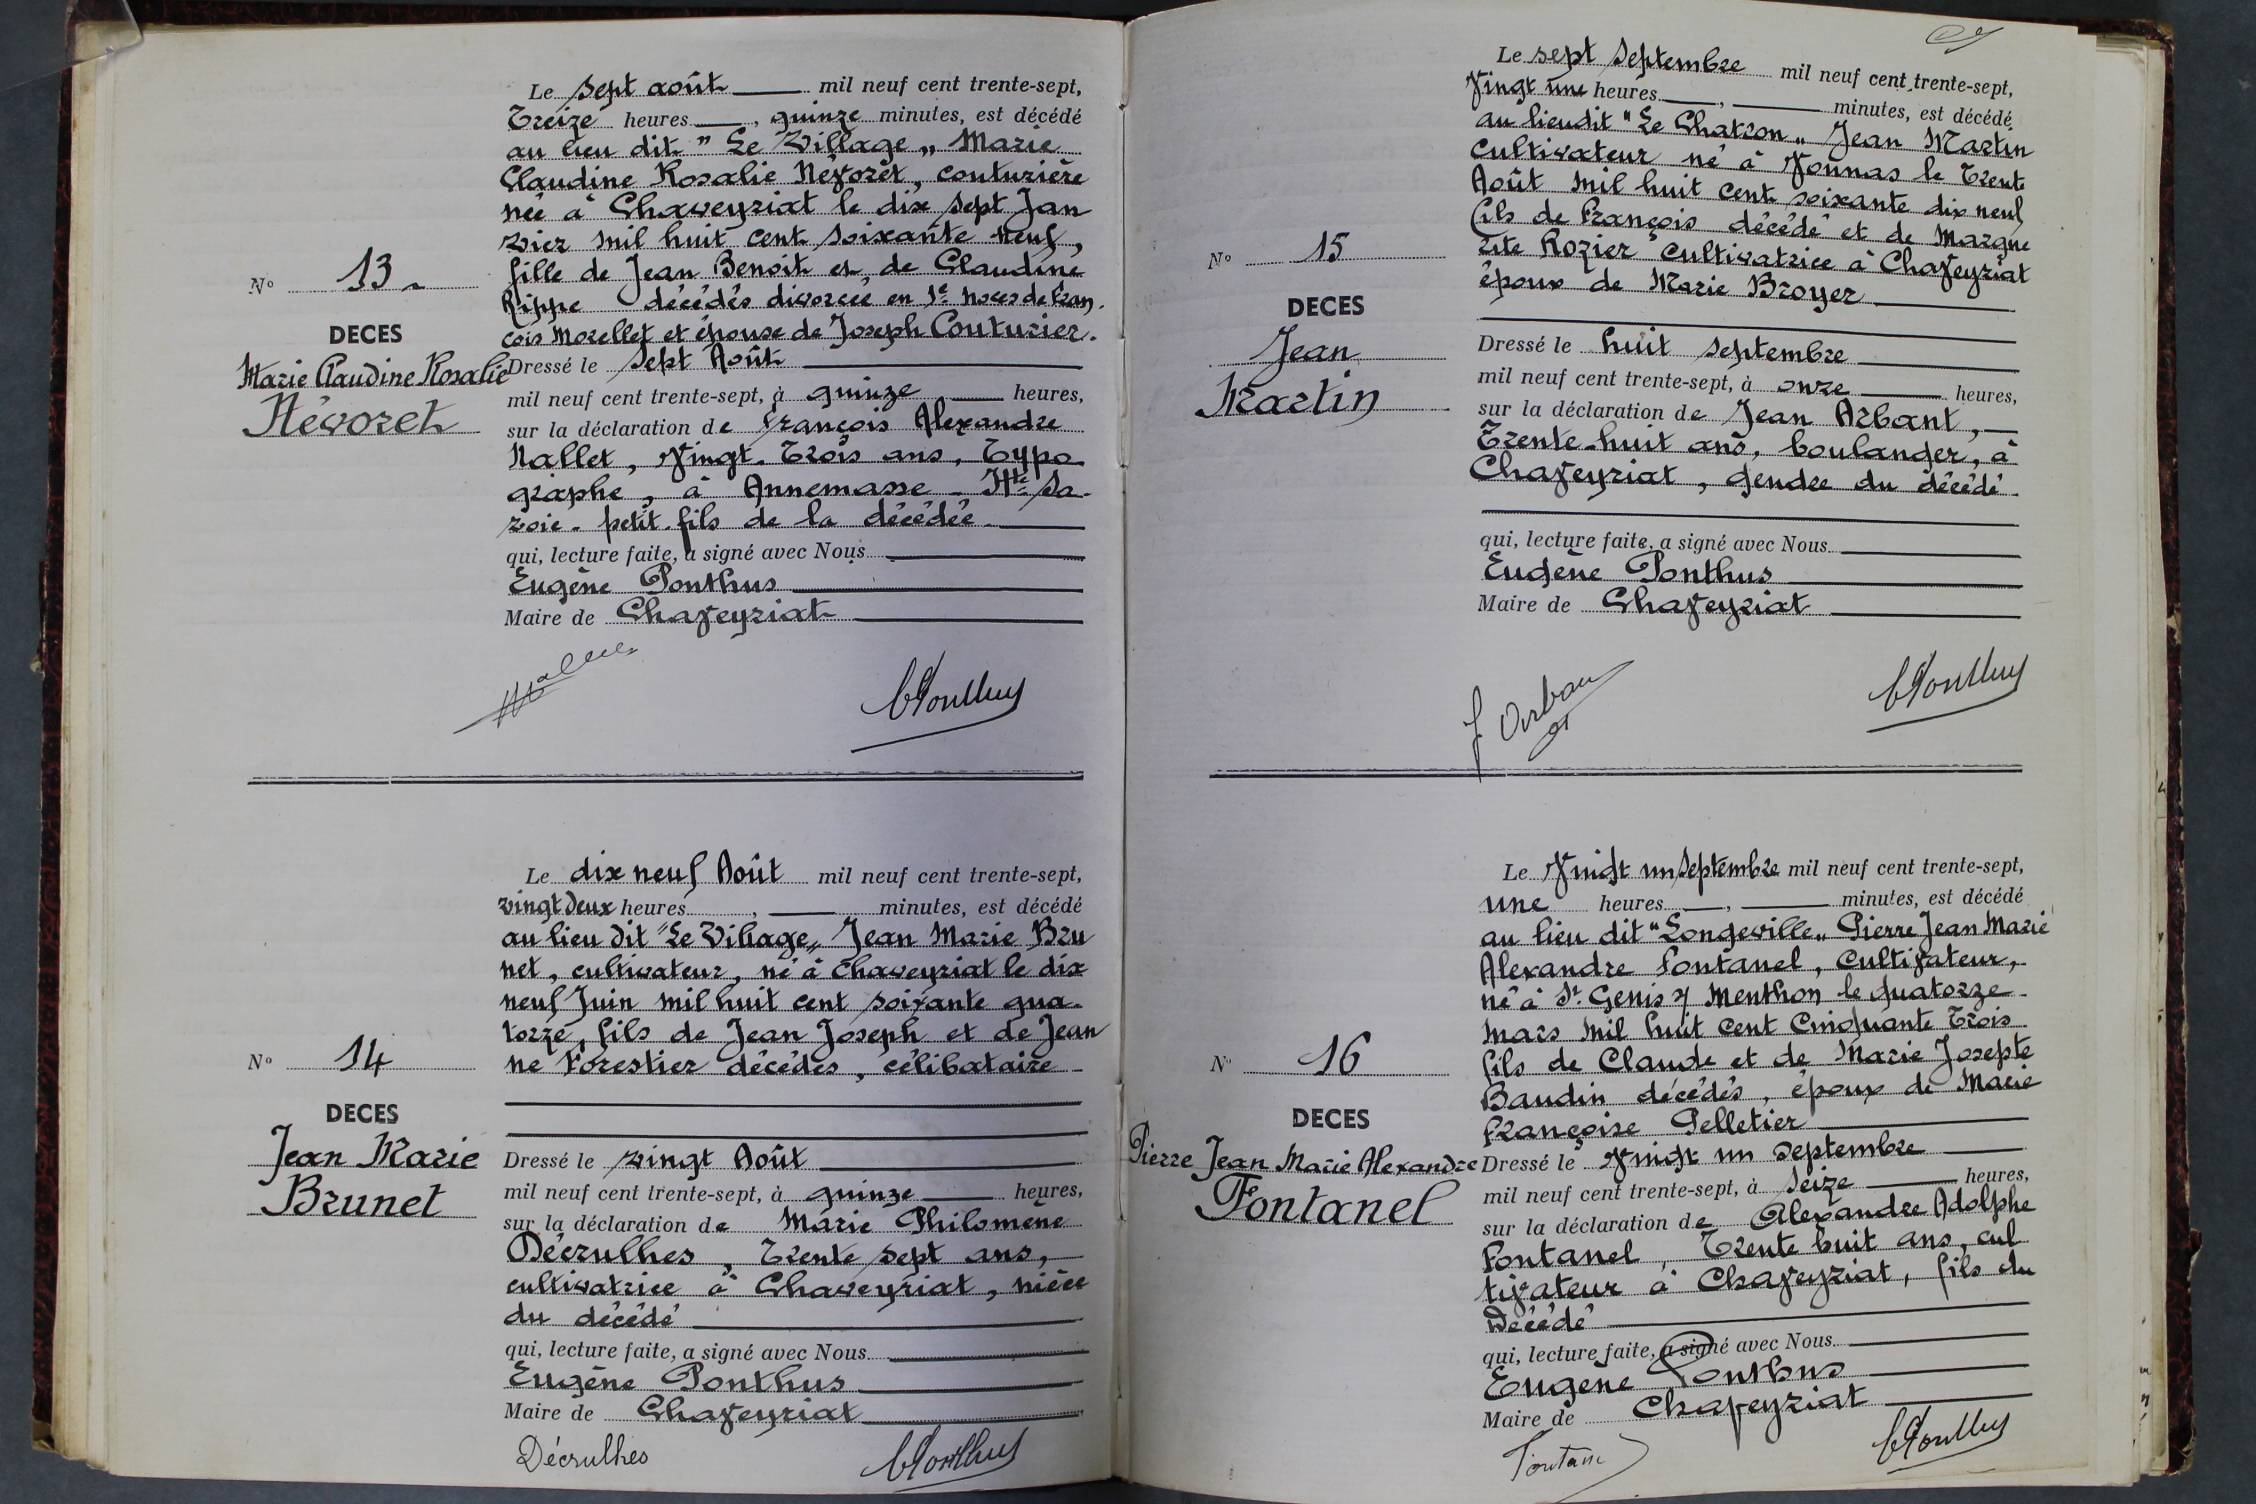 Le sept août mil neuf cent trente-sept,
Treize heures, quinze minutes, est décédé
au lieu dit "Le Village„ Marie
Claudine Rosalie Névoret, couturière
née à Chaveyriat le dix sept Jan
vier mil huit cent soixante neuf,
fille de Jean Benoit et de Claudine
Rippe décédés divorcée en 1e noces de Fran.
cois Morellet et épouse de Joseph Couturier.
N° 13
DECES
Marie Claudine Rosalie
Névoret
Dressé le sept Août
mil neuf cent trente-sept, à quinze heures,
sur la déclaration de François Alexandre
Nallet, Vingt-Trois ans, Typo
graphe, à Annemasse - Hte Sa-
voie - petit-fils de la décédée
qui, lecture faite, a signé avec Nous
Eugène Ponthus
Maire de Chaveyriat
EPonthus
Le dix neuf Août mil neuf cent trente-sept,
vingt deux heures, minutes, est décédé
au lieu dit "Le Village„ Jean Marie Bru
net, cultivateur, né à Chaveyriat le dix
neuf Juin mil huit cent soixante qua-
torze, fils de Jean Joseph et de Jean
ne Forestier décédés, célibataire
N° 14
DECES
Jean Marie
Brunet
Dressé le vingt Août
mil neuf cent trente-sept, à quinze heures,
sur la déclaration de Marie Philomène
Décrulhes, Trente sept ans,
cultivatrice à Chaveyriat, nièce
du décédé
qui, lecture faite, a signé avec Nous
Eugène Ponthus
Maire de Chaveyriat
Décrulhes EPonthus
Le sept Septembre mil neuf cent trente-sept,
Vingt une heures, minutes, est décédé
au lieudit "Le Chatron„ Jean Martin
cultivateur né à Vonnas le Trente
Août mil huit cent soixante dix neuf
fils de François décédé et de Margue
rite Rozier cultivatrice à Chaveyriat
époux de Marie Broyer
N° 15
DECES
Jean
Martin
Dressé le huit septembre
mil neuf cent trente-sept, à onze heures,
sur la déclaration de Jean Arbant,
Trente-huit ans, boulanger, à
Chaveyriat, gendre du décédé
qui, lecture faite, a signé avec Nous
Eugène Ponthus
Maire de Chaveyriat
J Arbant EPonthus
Le Vingt un Septembre mil neuf cent trente-sept,
une heures, minutes, est décédé
au lieu dit "Longeville„ Pierre Jean Marie
Alexandre Fontanel, Cultivateur,
né à St Genis s/ Menthon le quatorze
mars mil huit cent Cinquante Trois
fils de Claude et de Marie Josepte
Baudin décédés, époux de Marie
Françoise Pelletier
N° 16
DECES
Pierre Jean Marie Alexandre
Fontanel
Dressé le Vingt un Septembre
mil neuf cent trente-sept, à Seize heures,
sur la déclaration de Alexandre Adolphe
Fontanel, Trente huit ans, cul
tivateur à Chaveyriat, fils du
Décédé
qui, lecture faite, a signé avec Nous
Eugène Ponthus
Maire de Chaveyriat
EPonthus